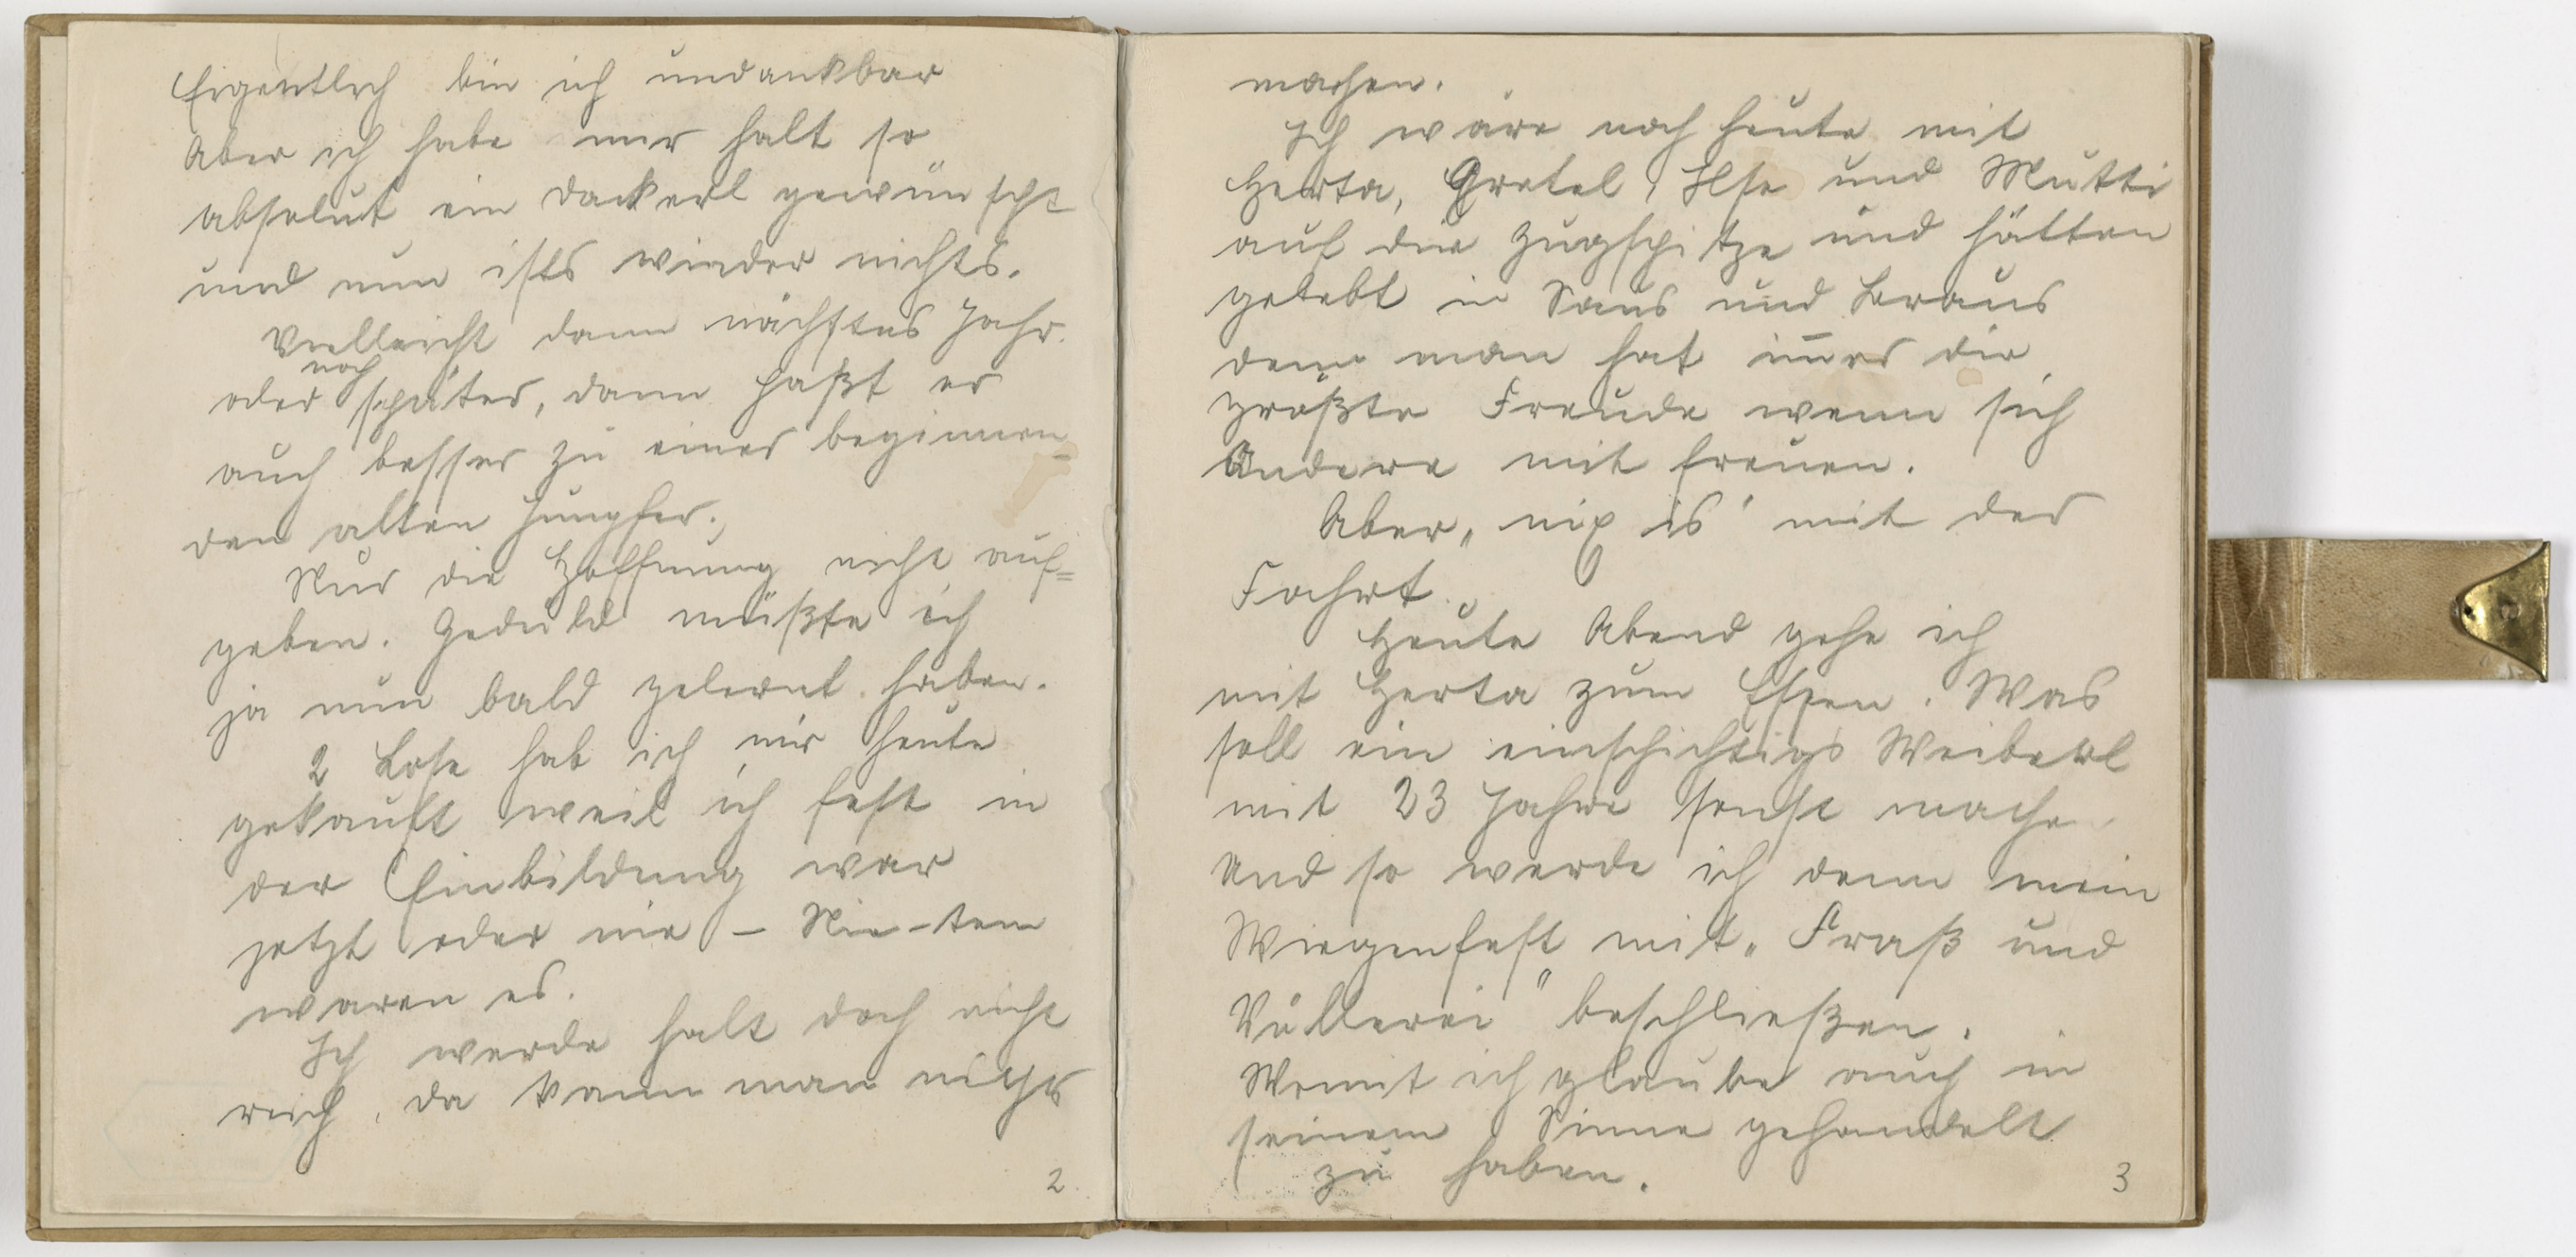 Eigentlich bin ich undankbar
Aber ich habe mir halt so
absolut ein Dackerl gewünscht
und nun ists wieder nichts.
Vielleicht dann nächstes Jahr.
noch
oder später, dann paßt er
auch besser zu einer beginnen
den alten Jungfer.
Nur die Hoffnung nicht auf=
geben. Geduld müßte ich
ja nun bald gelernt haben.
2 Lose hab ich mir heute
gekauft weil ich fest in
der Einbildung war
jetzt oder nie – Nie-ten
waren es.
Ich werde halt doch nicht
reich, da kann man nichts
2.
machen.
Ich wäre noch heute mit
Herta, Gretel, Ilse und Mutti
auf die Zugspitze und hätten
gelebt in Saus und Braus
denn man hat im̄er die
größte Freude wenn sich
Andere mit freuen.
Aber „nix is" mit der
Fahrt.
Heute Abend gehe ich
mit Herta zum Essen. Was
soll ein einschichtigs Weiberl
mit 23 Jahre sonst machen
Und so werde ich denn mein
Wiegenfest mit „Fraß und
Völlerei" beschließen.
Womit ich glaube auch in
seinem Sinne gehandelt
zu haben.
3